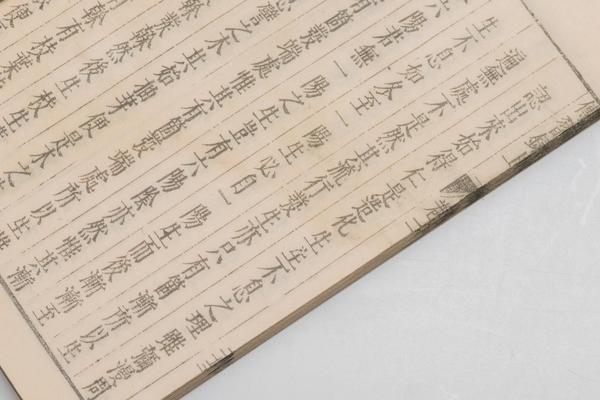 習錄上
認出來始得仁是造化生生不息之理雖彌漫周
遍無處不是然其流行發生亦只有箇漸所以生
生不息如冬至一陽生必自一陽生而後漸漸至
六陽若無一陽之生豈有六陽陰亦然惟其漸
有箇發端處惟其有箇發端處所以生惟
息譬之木其始抽芽便是木之
榦發榦然後生枝生
便
榦有枝葉